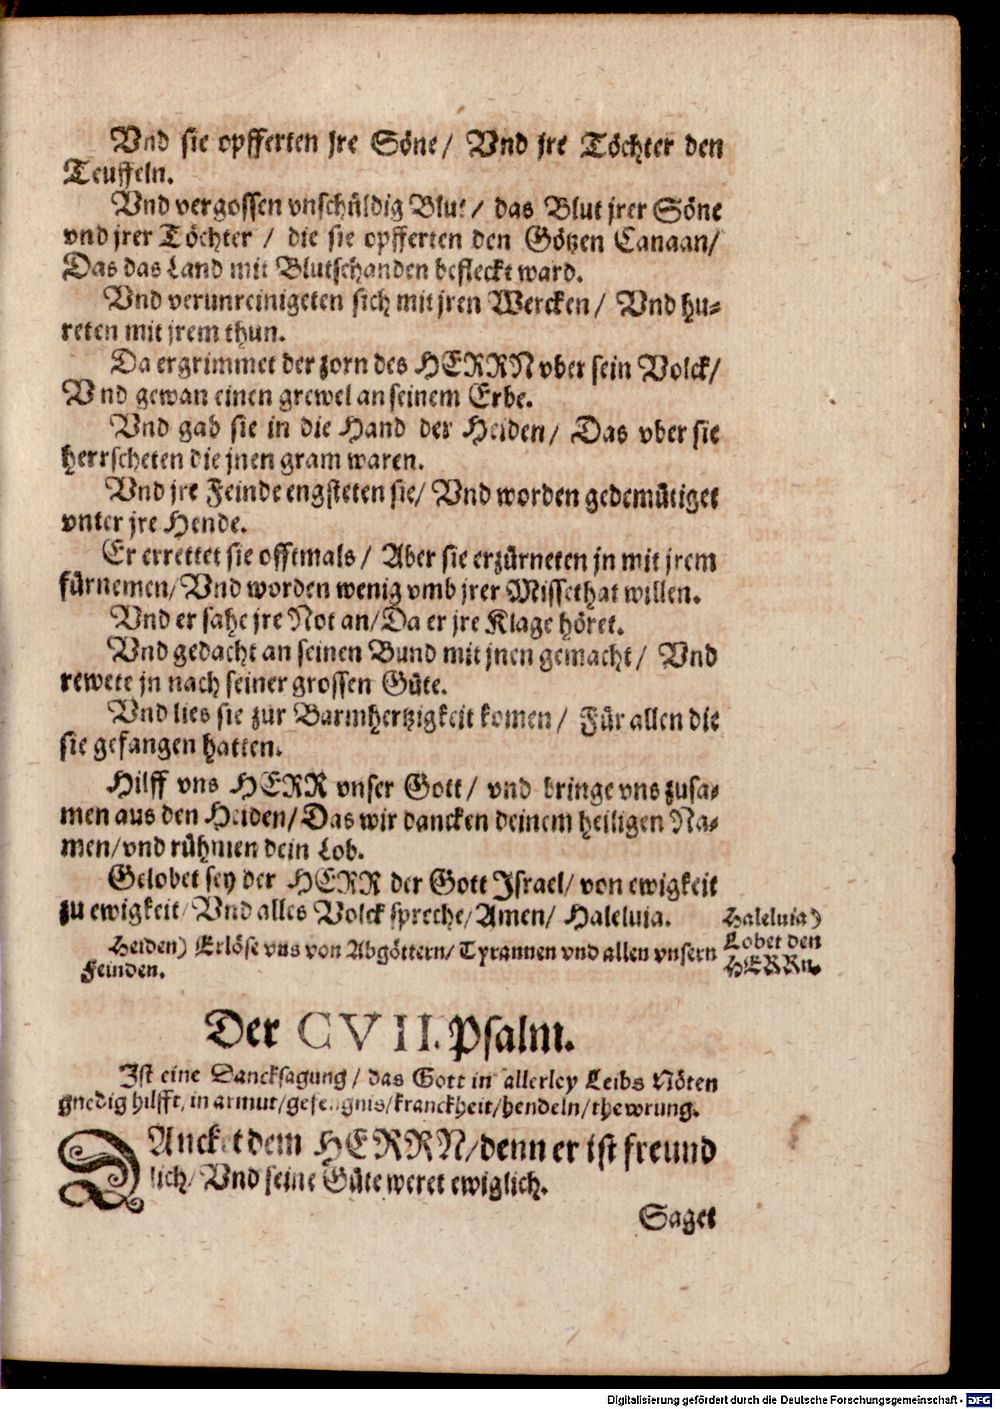 Vnd sie opfferten jre Söne/ Vnd jre Töchter den
Teuffeln.
Vnd vergossen vnschüldig Blut/ das Blut jrer Söne
vnd jrer Töchter / die sie opfferten den Götzen Canaan/
Das das Land mit Blutschanden befleckt ward.
Vnd verunreinigeten sich mit jren Wercken/ Vnd hu⸗
reten mit jrem thun.
Da ergrimmet der zorn des HERRN vber sein Volck/
Vnd gewan einen grewel an seinem Erbe.
Vnd gab sie in die Hand der Heiden/ Das vber sie
herrscheten die jnen gram waren.
Vnd jre Feinde engsteten sie/ Vnd worden gedemütiget
vnter jre Hende.
Er errettet sie offtmals/ Aber sie erzürneten jn mit jrem
fürnemen/ Vnd worden wenig vmb jrer Missethat willen.
Vnd er sahe jre Not an/ Da er jre Klage höret.
Vnd gedacht an seinen Bund mit jnen gemacht/ Vnd
rewete jn nach seiner grossen Güte.
Vnd lies sie zur Barmhertzigkeit komen/ Für allen die
sie gefangen hatten.
Hilff vns HERR vnser Gott/ vnd bringe vns zusa⸗
men aus den Heiden/ Das wir dancken deinem heiligen Na⸗
men/ vnd rühmen dein Lob.
Gelobet sey der HERR der Gott Jsrael/ von ewigkeit
zu ewigkeit/ Vnd alles Volck spreche/ Amen/ Haleluja.
Haleluja)
Lobet den
HERRn.
Heiden) Erlöse vns von Abgöttern/ Tyrannen vnd allen vnsern
Feinden.
Der CVII. Psalm.
Jst eine Dancksagung/ das Gott in allerley Leibs Nöten
gnedig hilfft/ in armut/ gefengnis/ kranckheit/ hendeln/ thewrung.
DAncket dem HERRN/ denn er ist freund
lich/ Vnd seine Güte weret ewiglich.
Saget
Digitalisierung gefördert durch die Deutsche Forschungsgemeinschaft - DFG